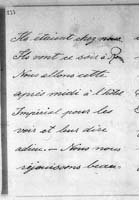 155
Ils étaient chez nous
Ils vont ce soir à
Nous allons cette
après midi à l'hôtel
Impérial pour les
voir et leur dire
adieu. — Nous nous
réjouissons beau-